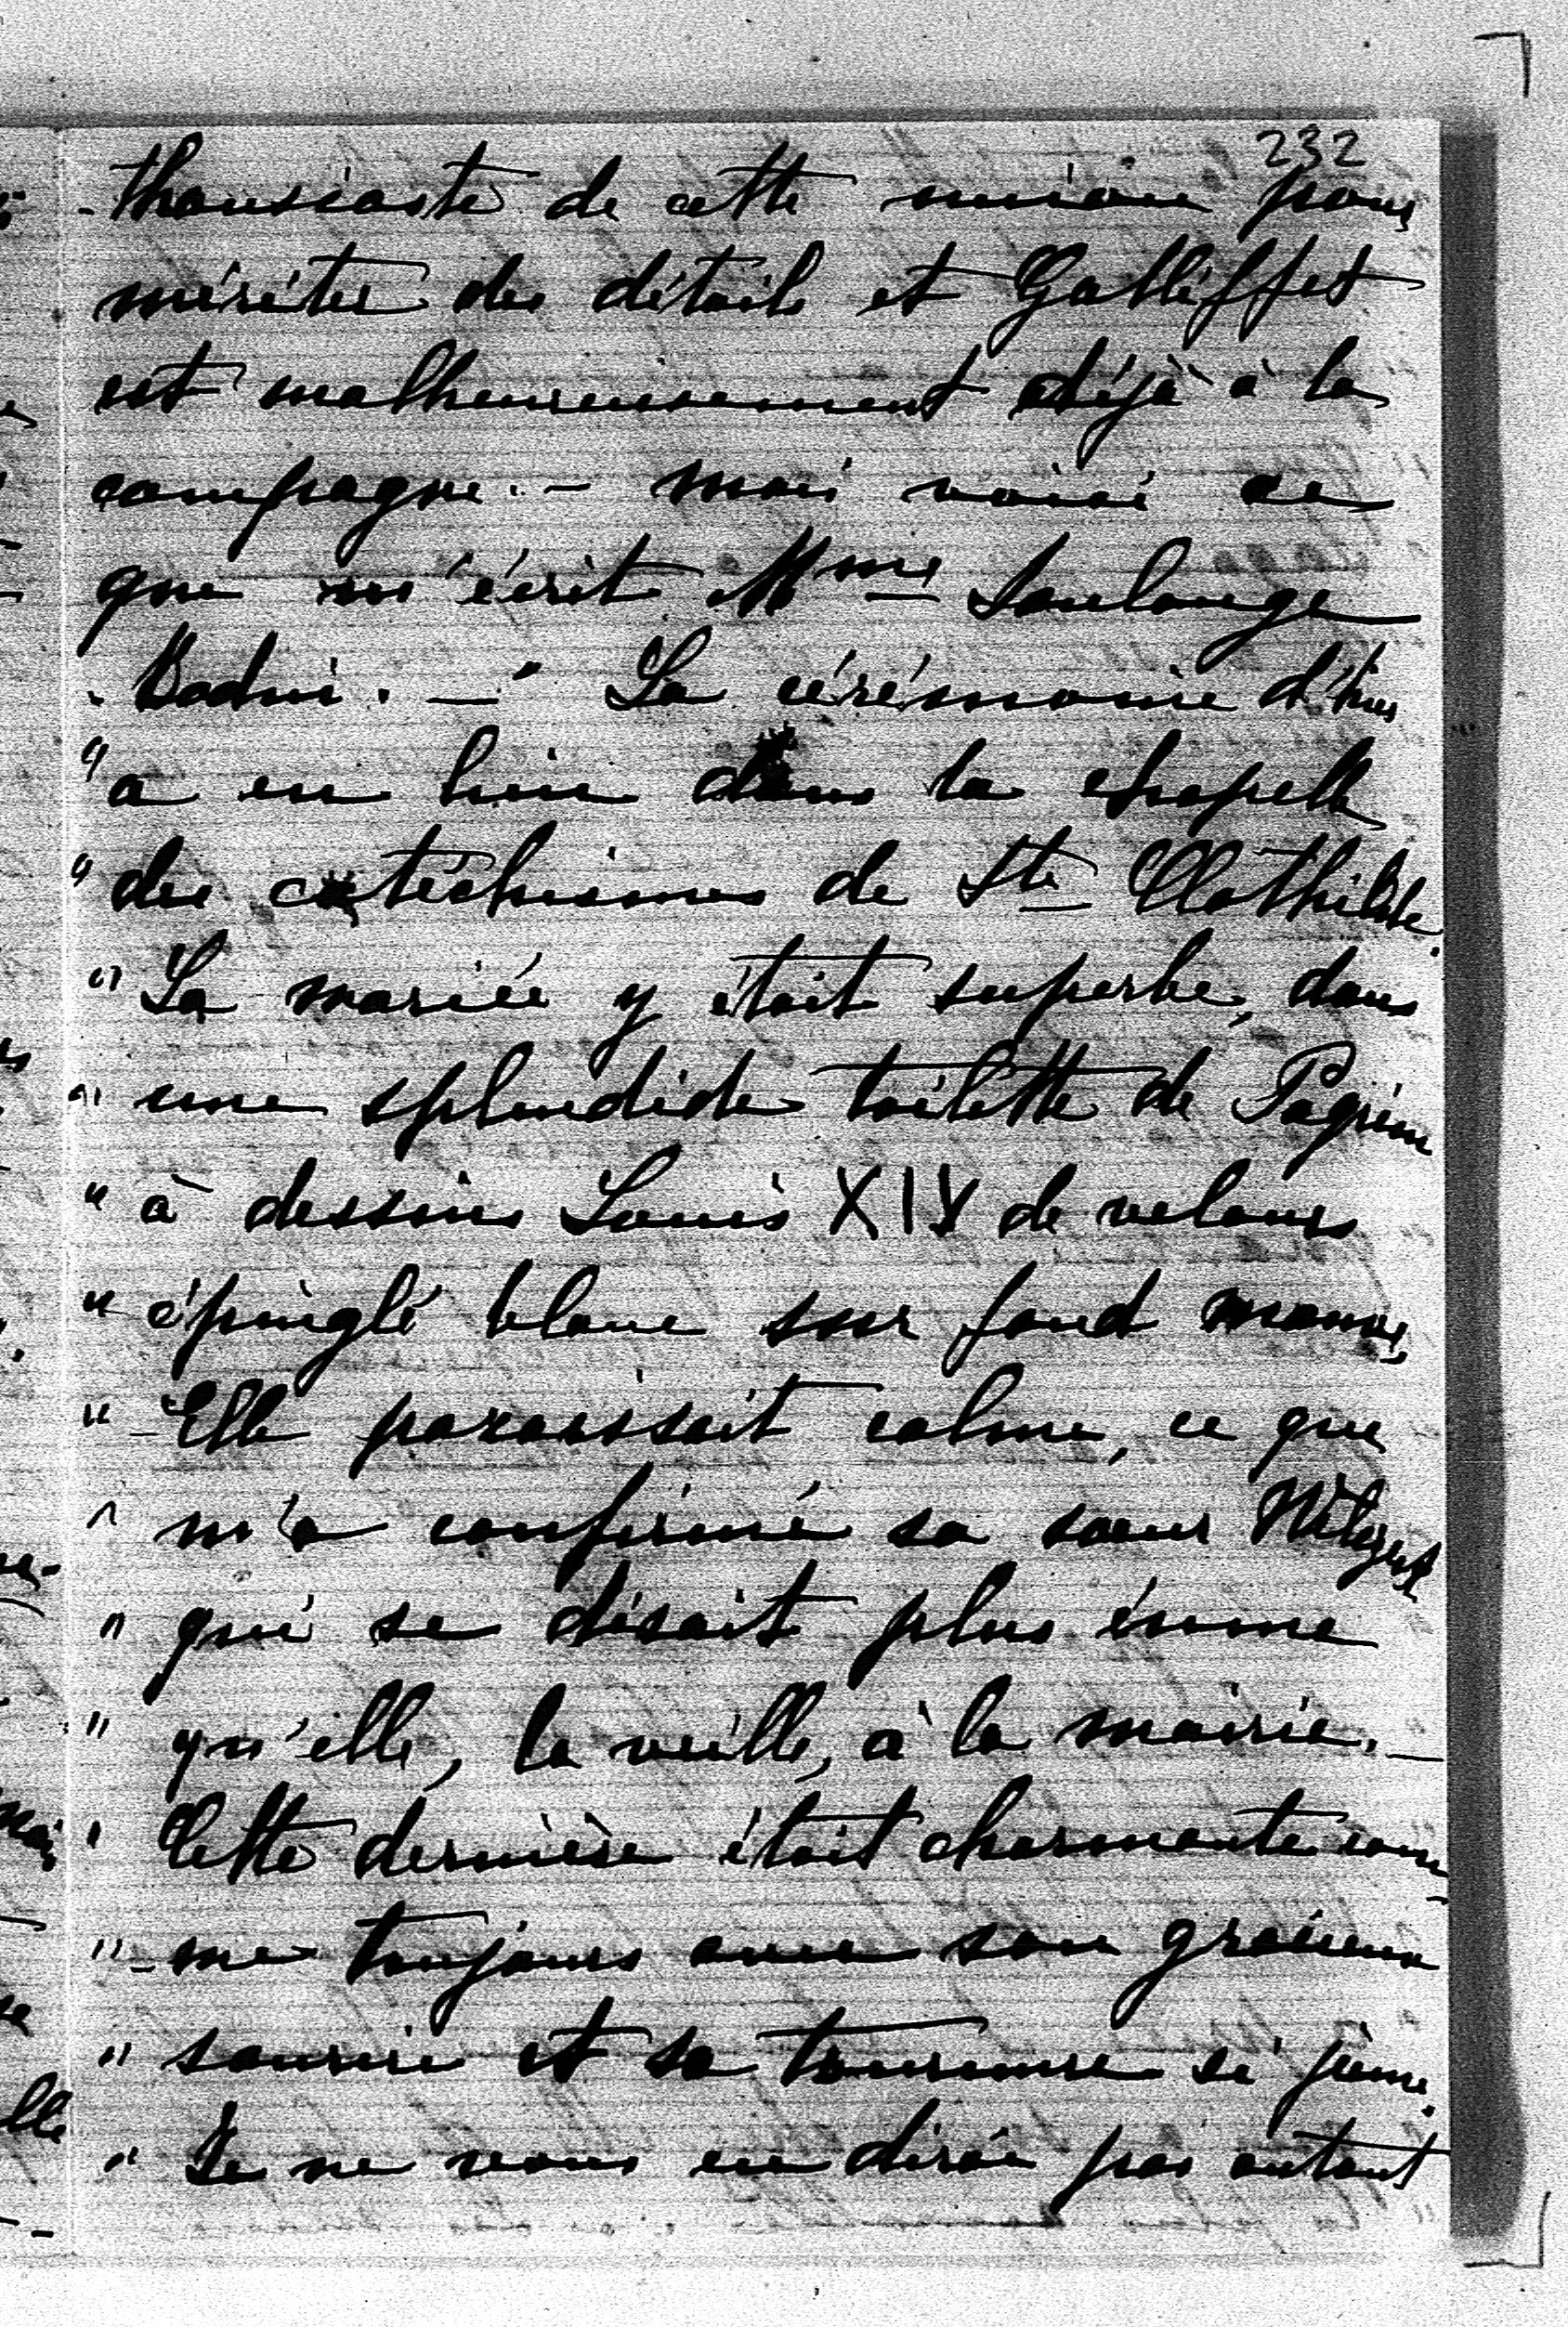 232
-thousiaste de cette union pour
mériter des détails et Galliffet
est malheureusement déjà à la
campagne. - mais voici ce
que m'écrit Mme Soulange
-Bodin. — " La cérémonie d'hier
" a eu lieu dans la chapelle
" des catéchismes de Ste Clothilde.
" La mariée y était superbe, dans
" une splendide toilette de Paquin
" à dessins Louis XIV de velours
" épinglé blanc sur fond mauve
" - Elle paraissait calme, ce que
" m'a confirmé sa sœur
" qui se disait plus émue
" qu'elle, la veille, à la mairie. —
" Cette dernière était charmante com
" -me toujours avec son gracieux
" sourire et sa tournure si jeune.
" Je ne vous en dirai pas autant